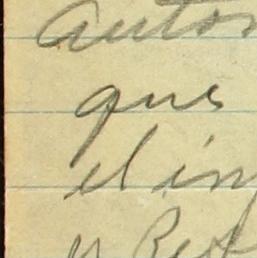 autor
que
el in
y Rep